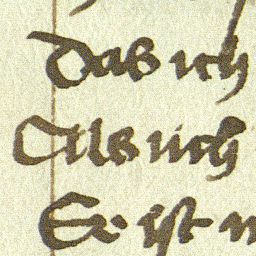 Das ich
Als üch
Er ist